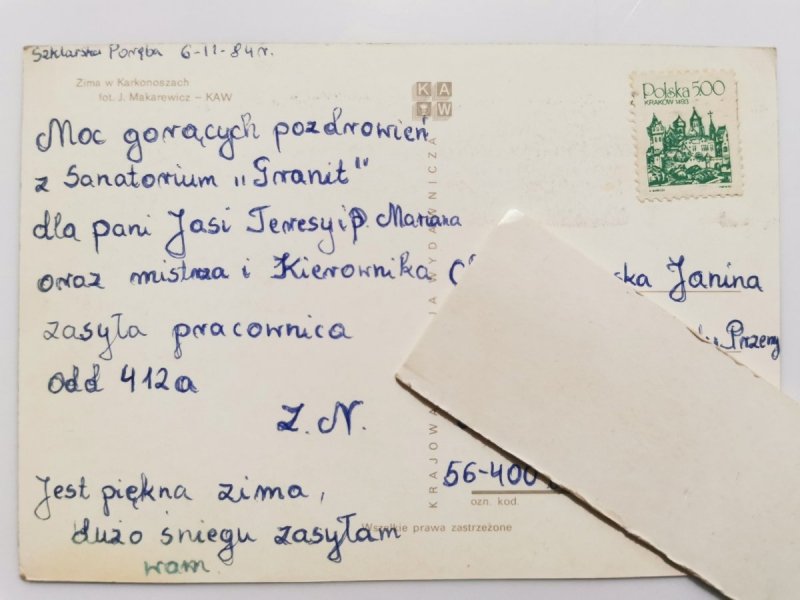 Szklarska Poręba 6-11-84r.
Zima w Karkonoszach
fot. J. Makarewicz – KAW
KAW
Polska 500
KRAKÓW 1493
Moc gorących pozdrowień
z Sanatorium „Granit"
dla pani Jasi Teresy i p. Mariana
oraz mistrza i Kierownika
zasyła pracownica
odd 412a
Z. N.
Jest piękna zima,
dużo śniegu zasyłam
wam
ska Janina
Przem
56-400
ozn. kod.
KRAJOWA JA WYDAWNICZA
Wszelkie prawa zastrzeżone